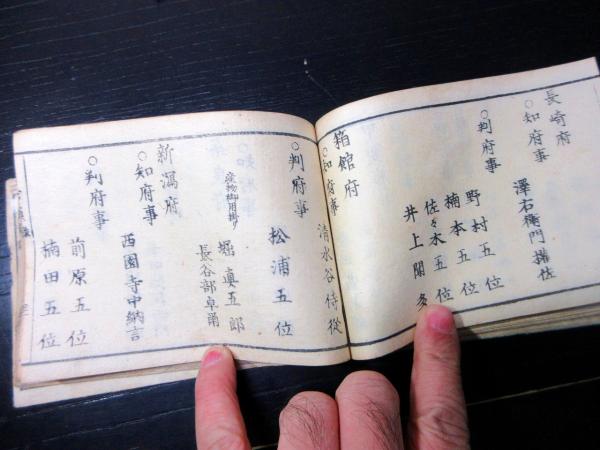 長崎府
○知府事
澤右衛門権佐
○判府事
野村五位
楠本五位
佐々木五位
井上聞多
箱館府
○知府事
清水谷侍従
○判府事
松浦五位
産物御用掛り
堀真五郎
長谷部卓爾
新潟府
○知府事
西園寺中納言
○判府事
前原五位
楠田五位